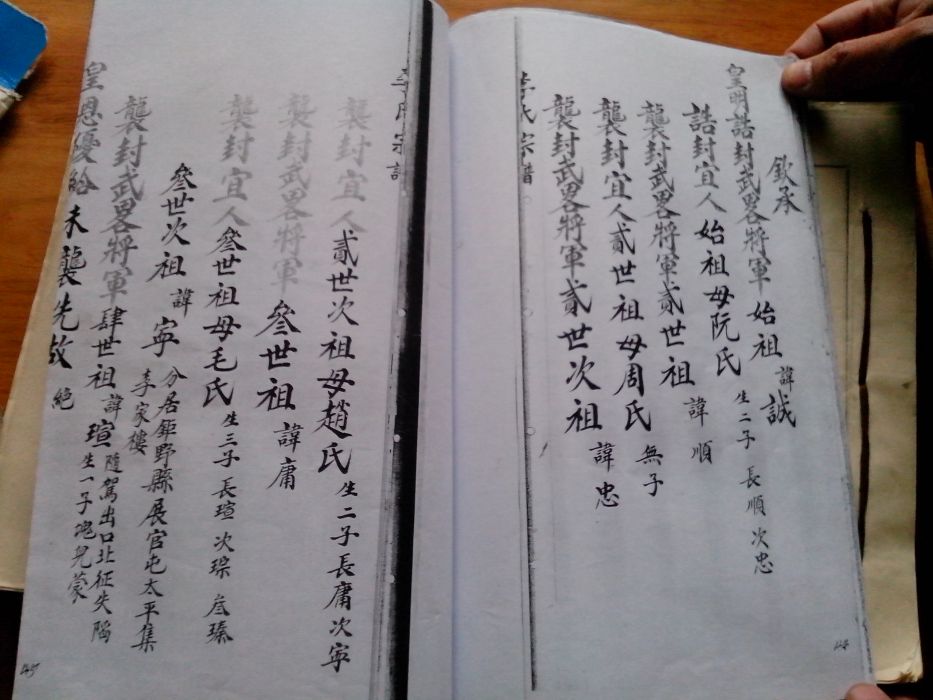 欽承
皇明誥封武畧將軍始祖諱誠
誥封宜人始祖母阮氏生二子長順次忠
襲封武畧將軍貳世祖諱順
襲封宜人貳世祖母周氏無子
襲封武畧將軍貳世次祖諱忠
李氏宗譜
李氏宗譜
襲封宜人貳世次祖母趙氏生二子長庸次寧
襲封武畧將軍叄世祖諱庸
襲封宜人叄世祖母毛氏生三子長瑄次琮叁瑧
叄世次祖諱寧分居鉅野縣展官屯太平集
李家樓
襲封武畧將軍肆世祖諱瑄隨駕出口北征失陷
生一子兒蒙
皇恩優給未襲先故絕